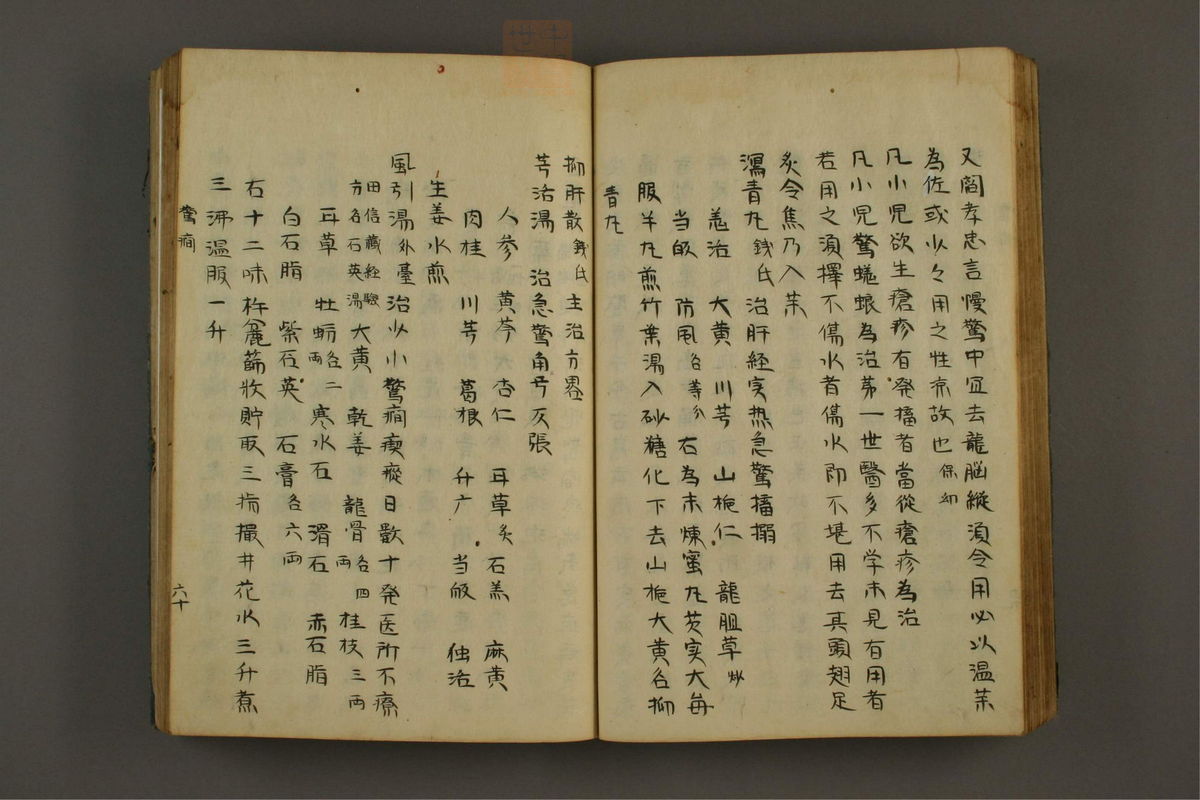 又閻孝忠言慢驚中冝去龍脳縦須令用必以温茉
為佐或少々用之性凉故也 保幼
凡小児欲生瘡疹有発搐者當從瘡疹為治
凡小児驚蜣蜋為治苐一世醫多不学未見有用者
若用之須擇不傷水者傷水即不堪用去其頭翅足
炙令焦乃入茉
瀉青丸 銭氏 治肝経実热急驚搐搦
羗活 大黄 川芎 山梔仁 龍胆草 炒
当皈 防風 各等分 右為末煉蜜丸芡实大毎
服半丸煎竹葉湯入砂糖化下去山梔大黄名抑
青丸
抑肝散 銭氏 主治方畧
芎活湯 治急驚角弓反張
人参 黄芩 杏仁 耳草炙 石羔 麻黄
肉桂 川芎 葛根 升广 当皈 独活
生姜水煎
風引湯 外臺 治少小驚癇瘈瘲日数十発医所不療
田信蔵経驗
方名石英湯 大黄 乾姜 龍骨 各四両 桂枝 三両
耳草 牡蛎 各二両 寒水石 滑石 赤石脂
白石脂 紫石英 石膏 各六両
右十二味杵麁篩收貯取三指撮井花水三升煮
三沸温服一升
驚癇
六十